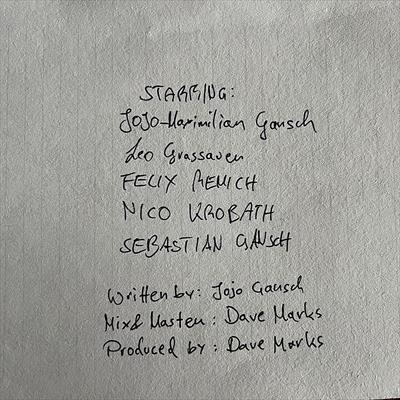 STARRING:
JOJO-Maximilian Gansch
Leo Grassauer
FELIX REMICH
NICO KROBATH
SEBASTIAN GANSCH
Written by: Jojo Gansch
Mix& Master: Dave Marks
Produced by: Dave Marks